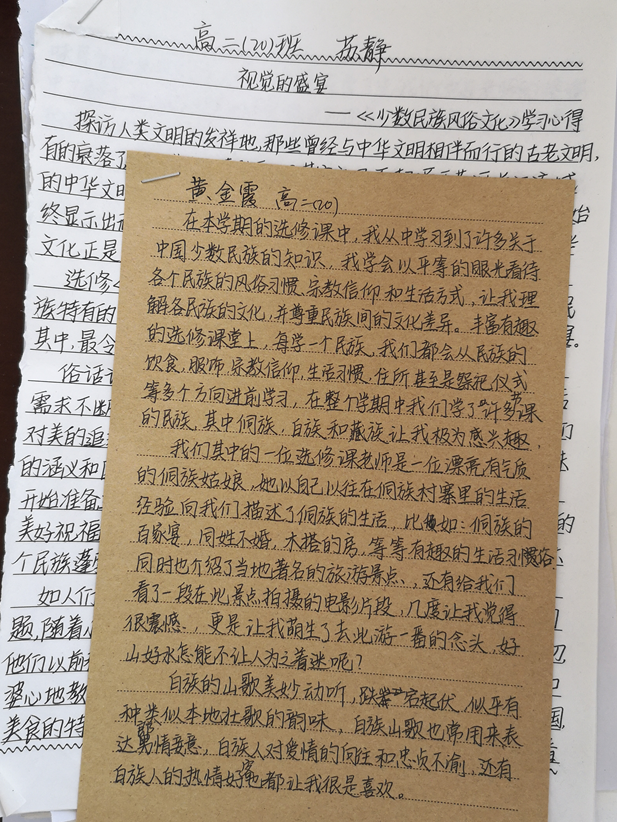 高二(20)班 苏静
视觉的盛宴
——《少数民族风俗文化》学习心得
探访人类文明的发祥地,那些曾经与中华文明相伴而行的古老文明,
有的衰落了
的中华文明
终显示出
文化正是
选修
族特有的
其中,最令
俗话
需求不断
对美的追
的涵义和
开始准备
美好祝福
个民族蓬
如人们
题,随着
他们以前
婆心地教
美食的特
黄金霞 高二(20)
在本学期的选修课中,我从中学习到了许多关于
中国少数民族的知识,我学会以平等的眼光看待
各个民族的风俗习惯、宗教信仰和生活方式,让我理
解各民族的文化,并尊重民族间的文化差异。丰富有趣
的选修课堂上,每学一个民族,我们都会从民族的
饮食、服饰、宗教信仰、生活习惯、住所甚至是祭祀仪式
等多个方向进前学习,在整个学期中我们学了许多课
的民族,其中侗族,白族和藏族让我极为感兴趣,
我们其中的一位选修课老师是一位漂亮有气质
的侗族姑娘,她以自己以往在侗族村寨里的生活
经验向我们描述了侗族的生活,比如:侗族的
百家宴,同姓不婚,木搭的房,等等有趣的生活习俗
同时也介绍了当地著名的旅游景点、,还有给我们
看了一段在此景点拍摄的电影片段,几度让我觉得
很震憾、,更是让我萌生了去此游一番的念头,好
山好水怎能不让人为之着迷呢?
白族的山歌美妙动听,跌宕起伏,似乎有
种类似本地壮歌的韵味,白族山歌也常用来表
达情意,白族人对爱情的向往和忠贞不渝,还有
白族人的热情好客都让我很是喜欢。